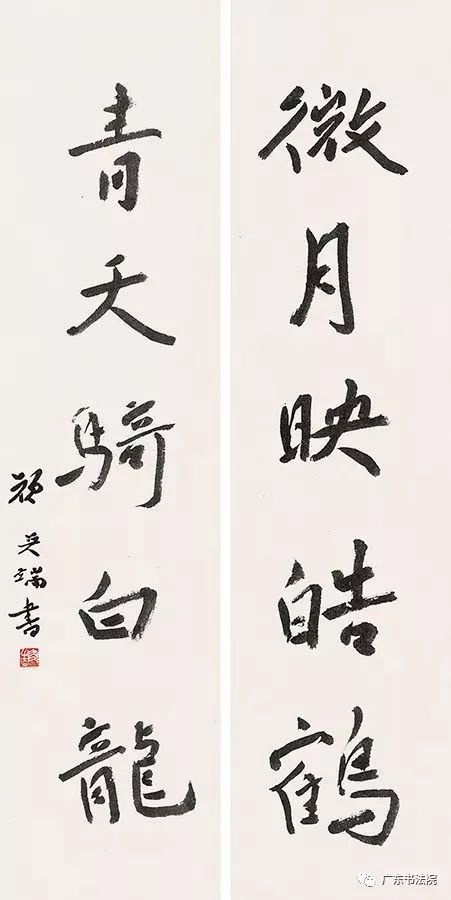 微月映皓鶴
青天騎白龍
吳端書
广东书法院